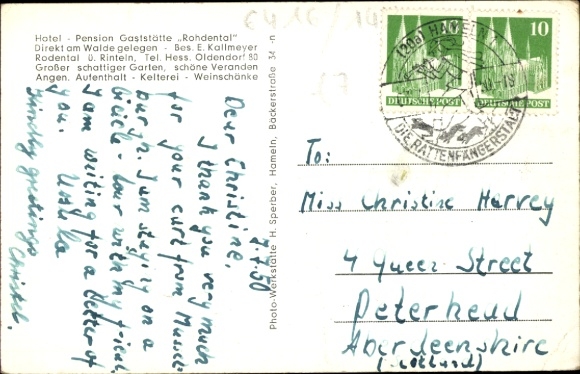 Hotel - Pension Gaststätte „Rohdental"
Direkt am Walde gelegen - Bes. E. Kallmeyer
Rodental ü. Rinteln, Tel. Hess. Oldendorf 80
Großer schattiger Garten, schöne Veranden
Angen. Aufenthalt - Kelterei - Weinschänke
7.7.50
Dear Christine,
I thank you very much
for your card from
I am staying on a
bicicle-tour with my friend
I am writing for a letter of
you. Ursula
Kindly greetings
Christel.
Photo-Werkstätte H. Sperber, Hameln, Bäckerstraße 34 -n
10
DEUTSCHE POST
10
DEUTSCHE POST
(20a) HAMELN
DIE RATTENFÄNGERSTADT
To:
Miss Christine Harvey
4 Queen Street
Peterhead
Aberdeenshire
(Scotland)